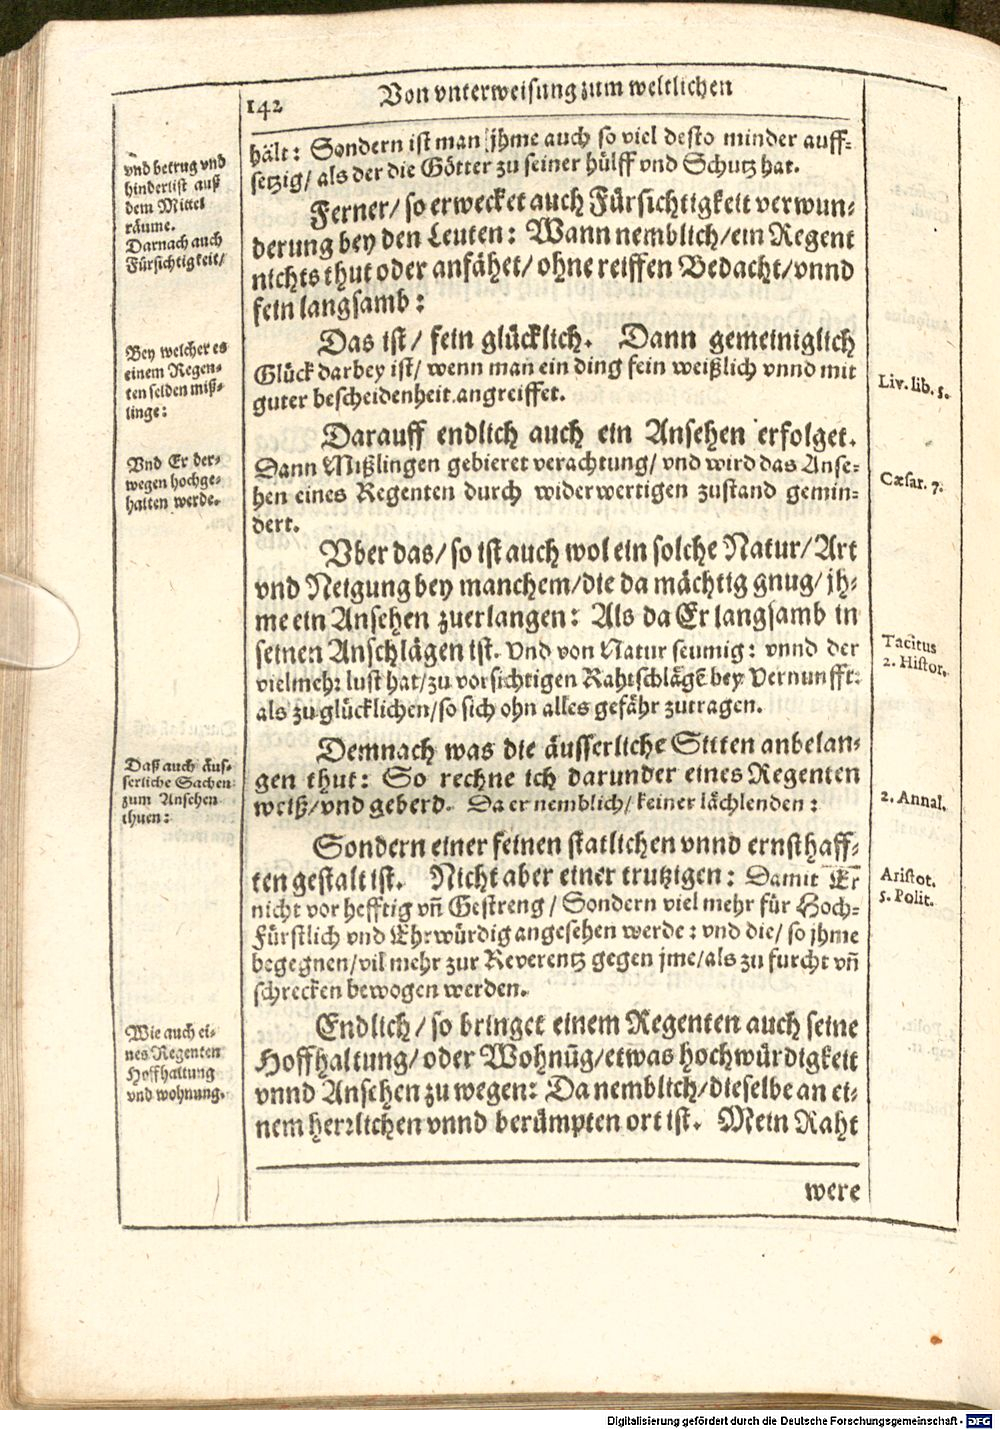 142
Von vnterweisung zum weltlichen
vnd betrug vnd
hinderlist auß
dem Mittel
räume.
Darnach auch
Fürsichtigkeit/
hält: Sondern ist man jhme auch so viel desto minder auff-
setzig/ als der die Götter zu seiner hülff vnd Schutz hat.
Ferner/ so erwecket auch Fürsichtigkeit verwun-
derung bey den Leuten: Wann nemblich/ ein Regent
nichts thut oder anfähet/ ohne reiffen Bedacht/ vnnd
fein langsamb:
Bey welcher es
einem Regen-
ten selden miß-
linge:
Das ist/ fein glücklich. Dann gemeiniglich
Glück darbey ist/ wenn man ein ding fein weißlich vnnd mit
guter bescheidenheit angreiffet.
Liv. lib. 5.
Vnd Er der-
wegen hochge-
halten werde.
Darauff endlich auch ein Ansehen erfolget.
Dann Mißlingen gebieret verachtung/ vnd wird das Anse-
hen eines Regenten durch widerwertigen zustand gemin-
dert.
Cæsar. 7.
Vber das/ so ist auch wol ein solche Natur/ Art
vnd Neigung bey manchem/ die da mächtig gnug/ jh-
me ein Ansehen zuerlangen: Als da Er langsamb in
seinen Anschlägen ist. Vnd von Natur seumig: vnnd der
vielmehr lust hat/ zu vorsichtigen Rahtschlägē bey Vernunfft:
als zu glücklichen/ so sich ohn alles gefähr zutragen.
Tacitus
2. Histor.
Daß auch äus-
serliche Sachen
zum Ansehen
thuen:
Demnach was die äusserliche Sitten anbelan-
gen thut: So rechne ich darunder eines Regenten
weiß/ vnd geberd. Da er nemblich/ keiner lächlenden:
2. Annal.
Sondern einer feinen statlichen vnnd ernsthaff-
ten gestalt ist. Nicht aber einer trutzigen: Damit Er
nicht vor hefftig vñ Gestreng/ Sondern viel mehr für Hoch-
Fürstlich vnd Ehrwürdig angesehen werde: vnd die/ so jhme
begegnen/ vil mehr zur Reverentz gegen jme/ als zu furcht vñ
schrecken bewogen werden.
Aristot.
5. Polit.
Wie auch ei-
nes Regenten
Hoffhaltung
vnd wohnung.
Endlich/ so bringet einem Regenten auch seine
Hoffhaltung/ oder Wohnūg/ etwas hochwürdigkeit
vnnd Ansehen zu wegen: Da nemblich/ dieselbe an ei-
nem herrlichen vnnd berümpten ort ist. Mein Raht
were
Digitalisierung gefördert durch die Deutsche Forschungsgemeinschaft - DFG